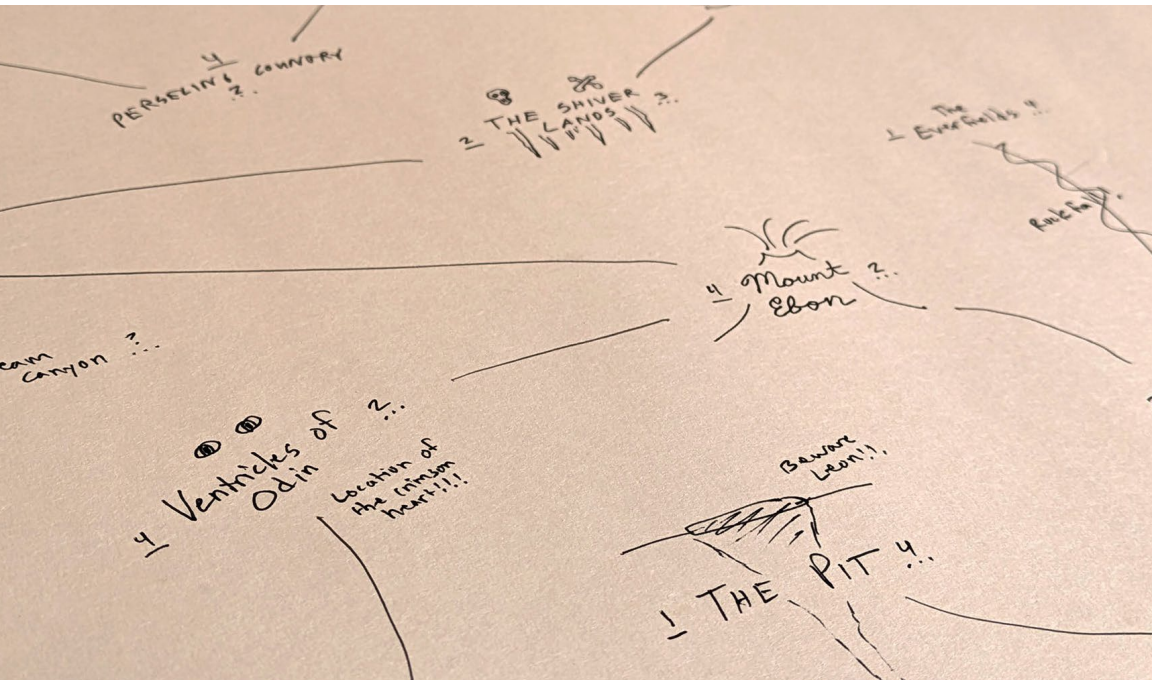 4
PERSELING COUNTRY
2..
2 THE SHIVER 3..
LANDS
The
1 Everfields 4..
Rockfall
4 Mount 2..
Ebon
eam
canyon ?..
4 Ventricles of 2...
Odin
Location of
the crimson
heart!!!
Beware
Leon!!,
1 THE PIT 4...